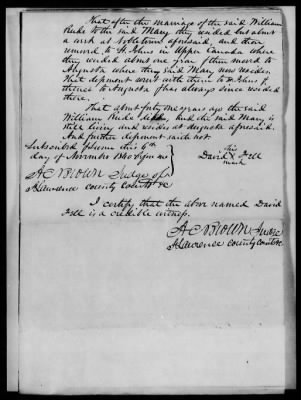 That after the marriage of the said William
Rude to the said Mary they resided but about
a week at Nobletown aforesaid, and then
removed to St Johns in Upper Canada where
they resided about one year & then moved to
Augusta where they said Mary now resides
That deponent went with them to St Johns &
thence to Augusta & has always since resided
there.
That about forty one years ago the said
William Rude and the said Mary is
still living and resides at Augusta aforesaid.
And further deponent saith not.
Subscribed & sworn this 6th
day of November 1840 before me
his
David X Fell
mark
A C Brown Judge of
St Lawrence County Courts &c
I certify that the above named David
Fell is a credible witness.
A C Brown Judge
St Lawrence County Courts &c